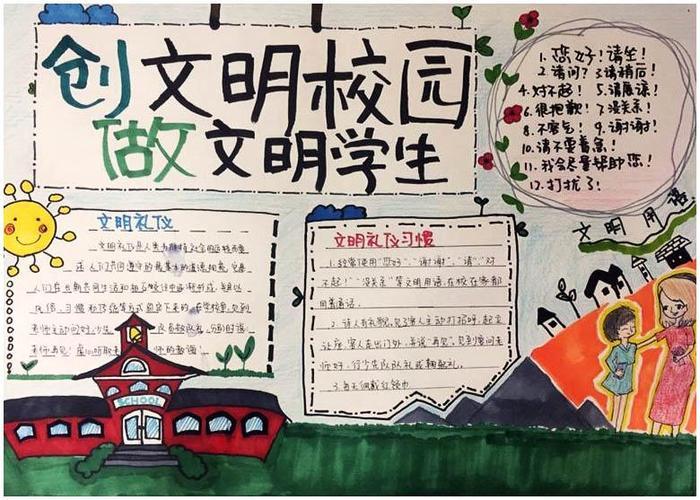 创文明校园
做文明学生
1. 您好！请坐！
2. 请问？ 3. 请稍后！
4. 对不起！ 5. 请原谅！
6. 很抱歉！ 7. 没关系！
8. 不客气！ 9. 谢谢！
10. 请不要着急！
11. 我会尽量帮助您！
12. 打扰了！
文明用语
文明礼仪
文明礼仪是人类为维持社会的正常
人们共同遵守的最基本的道德
人们在长期共同生活和相互
习惯和传统等方式固定下来的
老师主动问好
文明礼仪习惯
1. 经常使用“您好”、“谢谢”、“请”、“对
不起！”“没关系”等文明用语，在校在家都
用普通话。
2. 待人有礼貌，见了客人主动打招呼，起立
让座，客人走出门外，再说“再见”，见到
师好，行少先队队礼或鞠躬礼。
3. 每天佩戴红领巾
SCHOOL